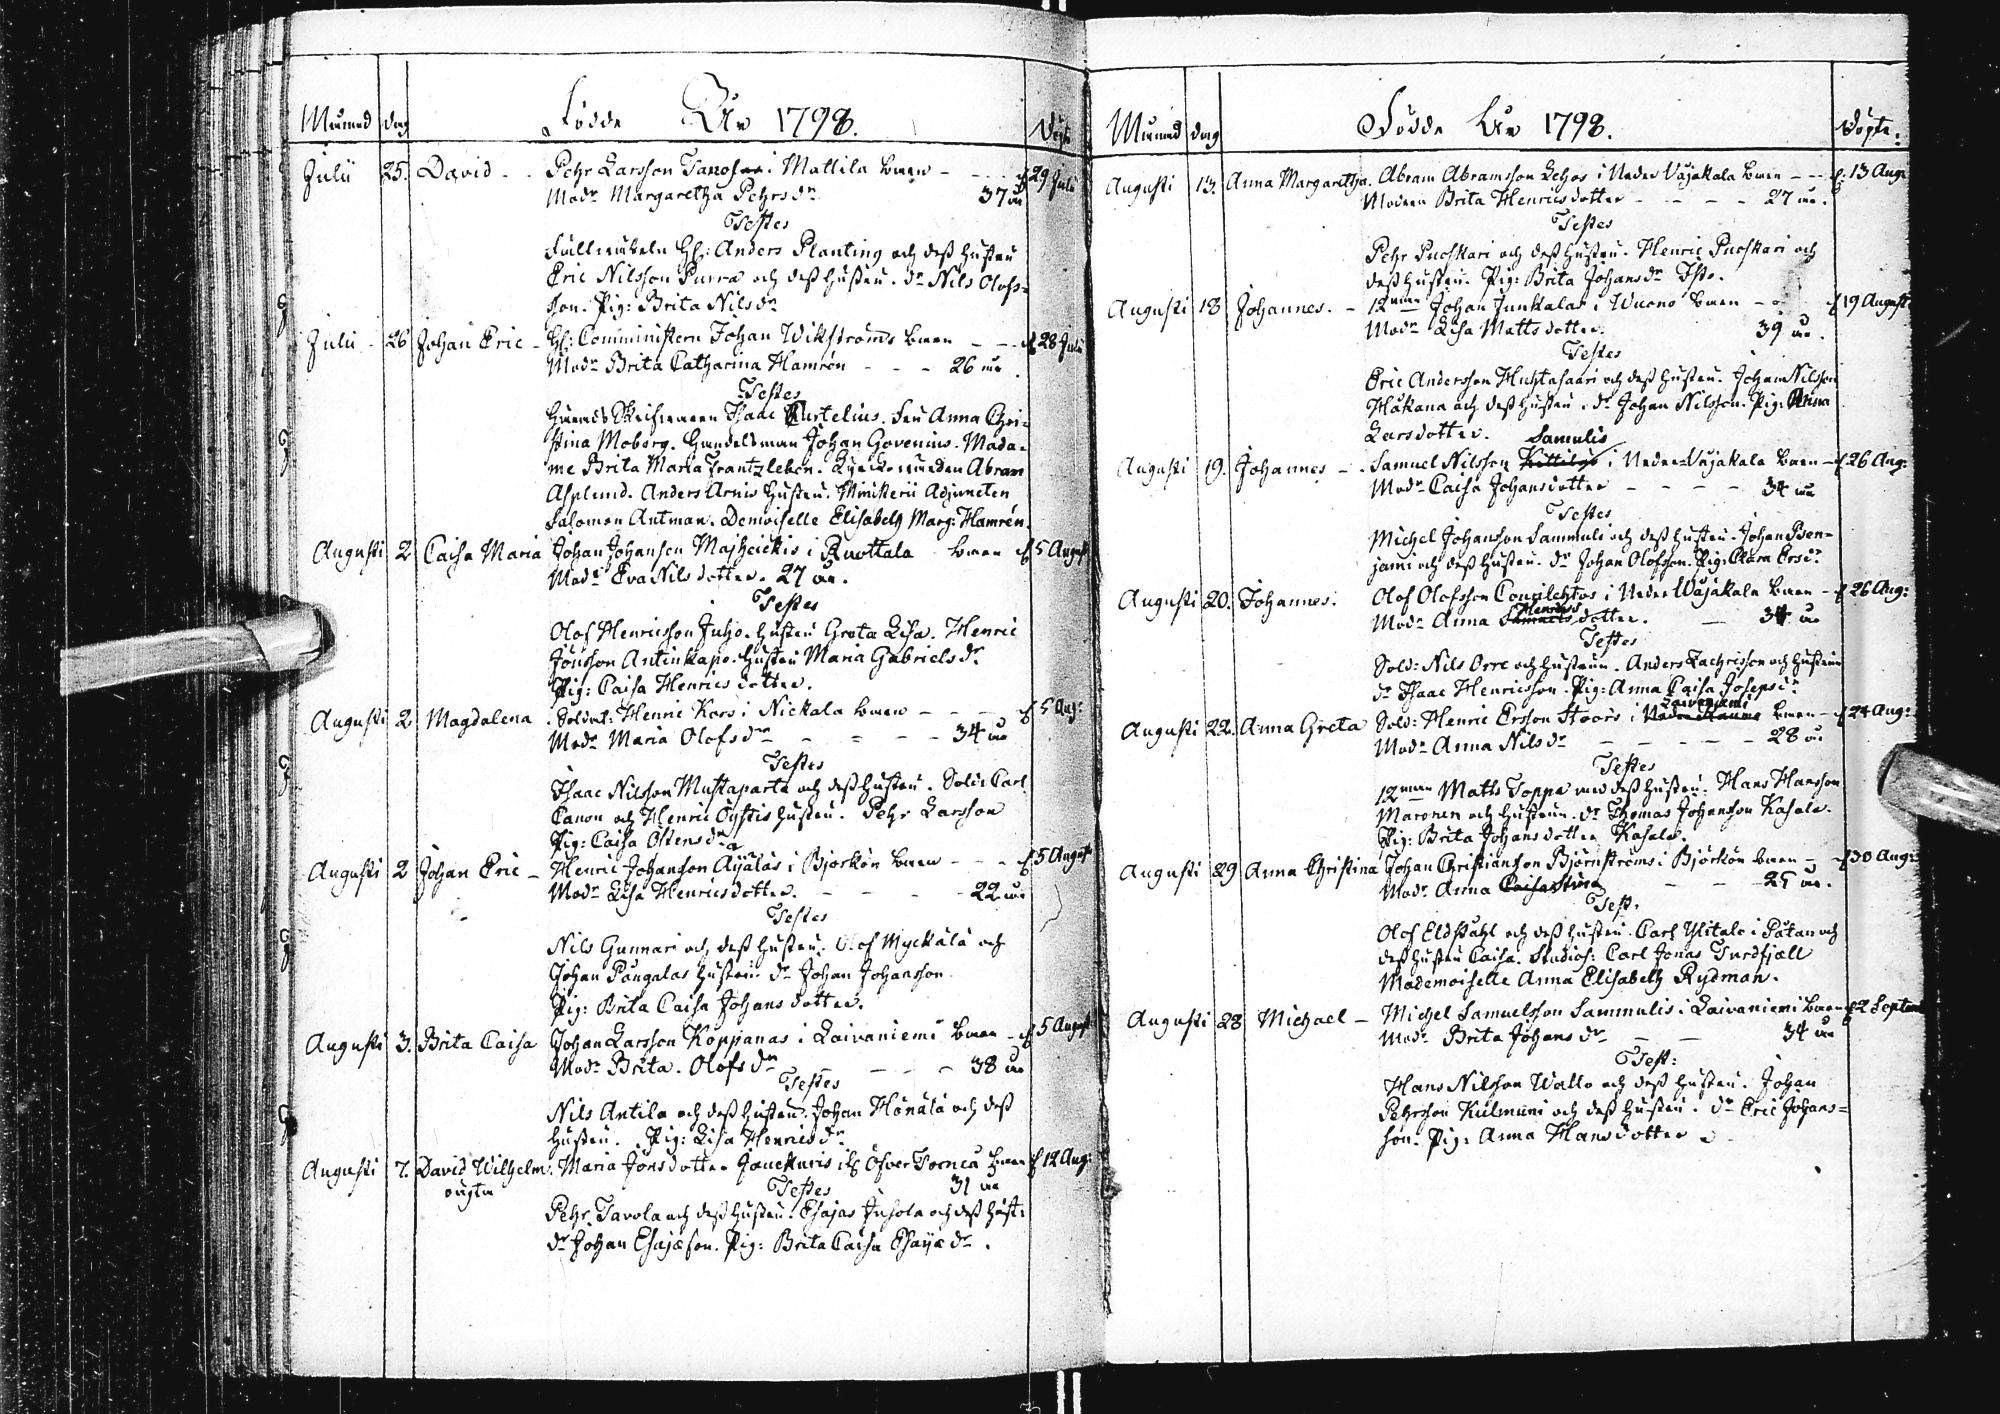 Månad dag Födde År 1798. Döpt.
Julii 25. David - - Pehr Larsson i Mattila barn - - - 29 Julii
Modr Margaretha Pehrsdr 37 år
Testes
Hr: Anders Planting och dess hustru
Eric Nilsson Purra och dess hustru. dr Nils Olofs-
son. Pig: Brita Nilsdr
Julii - 26 Johan Eric - Hr: Comministern Johan Wikströms barn - - 28 Julii
Modr Brita Catharina Hamrén - - - 26 år
Testes
Isaac Curtelius. Fru Anna Chri-
stina Moberg. Handelsman Johan Govenius. Mada-
me Brita Maria Frantzleben. Abram
Asplund. Anders Arnis hustru. Ministerii Adjuncten
Salomon Antman. Demoiselle Elisabeth Marg: Hamrén.
Augusti 2 Caisa Maria Johan Johansson Majheickis i Ruottala barn 5 August
Modr Eva Nilsdotter. 27 år.
Testes
Olof Henricsson Juho. hustru Greta Lisa. Henric
Jönsson Antinkapo. hustru Maria Gabrielsdr
Pig: Caisa Henricsdotter.
Augusti 2 Magdalena Soldat: Henric Kors i Nickala barn - - - 5 Aug:
Modr Maria Olofsdr - - - - 34 år
Testes
Isaac Nilsson Mustaparta och dess hustru. Sold: Carl
Canon och Henric Öystis hustru. Pehr Larsson
Pig: Caisa Ostensdr
Augusti 2 Johan Eric - Henric Johansson Äyäläs i Björkön barn - - - 5 August
Modr Lisa Henricsdotter. - - - 22 år
Testes
Nils Gunnari och dess hustru. Olof Myckälä och
Johan Pängalas hustru dr Johan Johansson
Pig: Brita Caisa Johansdotter.
Augusti 3. Brita Caisa Johan Larsson Koppanas i Laivaniemi barn - 5 August
Modr Brita. Olofsdr - - - 38 år
Testes
Nils Antila och dess hustru. Johan Hönälä och dess
hustru. Pig: Lisa Henricsdr
Augusti 7. David Wilhelm. Maria Jönsdotter Öfver Torneå barn 12 Aug:
oägta Testes 31 år
Pehr Tavola och dess hustru. Esajas Juhola och dess hust:
dr Johan Esajæson. Pig: Brita Caisa Esajædr.
Månad dag Födde År 1798. Döpte.
Augusti 13. Anna Margaretha. Abram Abramsson Lehos i Neder Väjakala barn - - 13 Aug:
Modren Brita Henricsdotter - - - - 27 år.
Testes
Pehr Puoskari och dess hustru. Henric Puoskari och
dess hustru. Pig: Brita Johansdr Iso.
Augusti 18 Johannes. - 12man Johan Junkalas i Wuono barn - - 19 August
Modr Lisa Mattsdotter. 39 år.
Testes
Eric Andersson Huhtasaari och dess hustru. Johan Nilsson
Håkana och dess hustru. dr Johan Nilsson. Pig: Anna
Larsdotter.
Samulis
Augusti 19. Johannes - - Samuel Nilsson Kittilys i Neder Väjakala barn - 26 Aug:
Modr Caisa Johansdotter - - - 34 år
Testes
Michel Johansson Sammuli och dess hustru. Johan Ben-
jami och dess hustru. dr Johan Olofsson. Pig: Clara Ersdr
Augusti 20. Johannes. Olof Olofsson i Neder Wäjakala barn - 26 Aug:
Henrics
Modr Anna Samuelsdotter. - 34 år
Testes
Sold: Nils Orre och hustrun. Anders Zachrisson och hustrun
dr Isaac Henricsson. Pig: Anna Caisa Josepsdr
Laivaniemi
Augusti 22. Anna Greta Sold: Henric Ersson Stoors i barn - 24 Aug:
Modr Anna Nilsdr - - - 28 år
Testes
12man Matts Toppa med dess hustru. Hans Hansson
Maronen och hustrun. dr Thomas Johansson Kasala.
Pig: Brita Johansdotter Kasala.
Augusti 29 Anna Christina Johan Christiansson Björnströms i Björkön barn - 30 Aug:
Modr Anna Caisa Stina - - - 25 år.
Test.
Olof Eldstähl och dess hustru. Carl Ylitalo i Pätan och
dess hustru Caisa. Studios: Carl Jonas Turdfjæll
Mademoiselle Anna Elisabeth Rydman.
Augusti 28 Michael - Michel Samuelsson Sammulis i Laivaniemi barn 2 Septem
Modr Brita Johansdr - - 34 år
Test:
Hans Nilsson Wallo och dess hustru. Johan
Pehrsson Kulmuni och dess hustru. dr Eric Johans-
son. Pig: Anna Hansdotter.